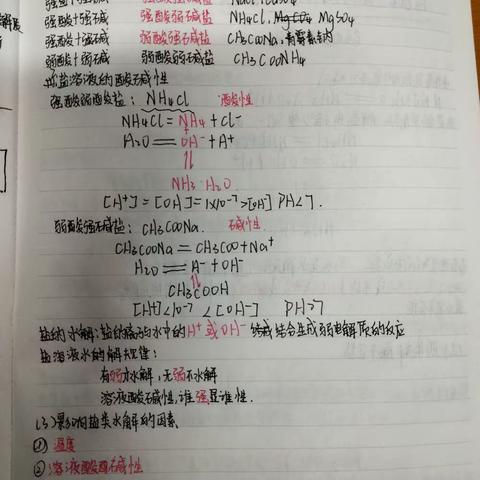 强酸弱碱盐 NH4Cl, MgSO4
强酸+强碱 弱酸强碱盐 CH3COONa,
弱酸+弱碱 弱酸弱碱盐 CH3COONH4
盐溶液的酸碱性
强酸弱碱盐: NH4Cl 酸性
NH4Cl=NH4+Cl-
H2O=OH-+H+
NH3·H2O
[H+]=[OH]=1x10-7>[OH] PH<7.
弱酸强碱盐: CH3COONa. 碱性
CH3COONa=CH3COO+Na+
H2O=H-+OH-
CH3COOH
[H+]<10-7<[OH-] PH>7
盐的水解:盐的离子与水中的H+或OH-结合生成弱电解质的反应
盐溶液水的解规律:
有弱才水解,无弱不水解
溶液酸碱性,谁强显谁性.
(3)影响盐类水解的因素
① 温度
②溶液酸碱性